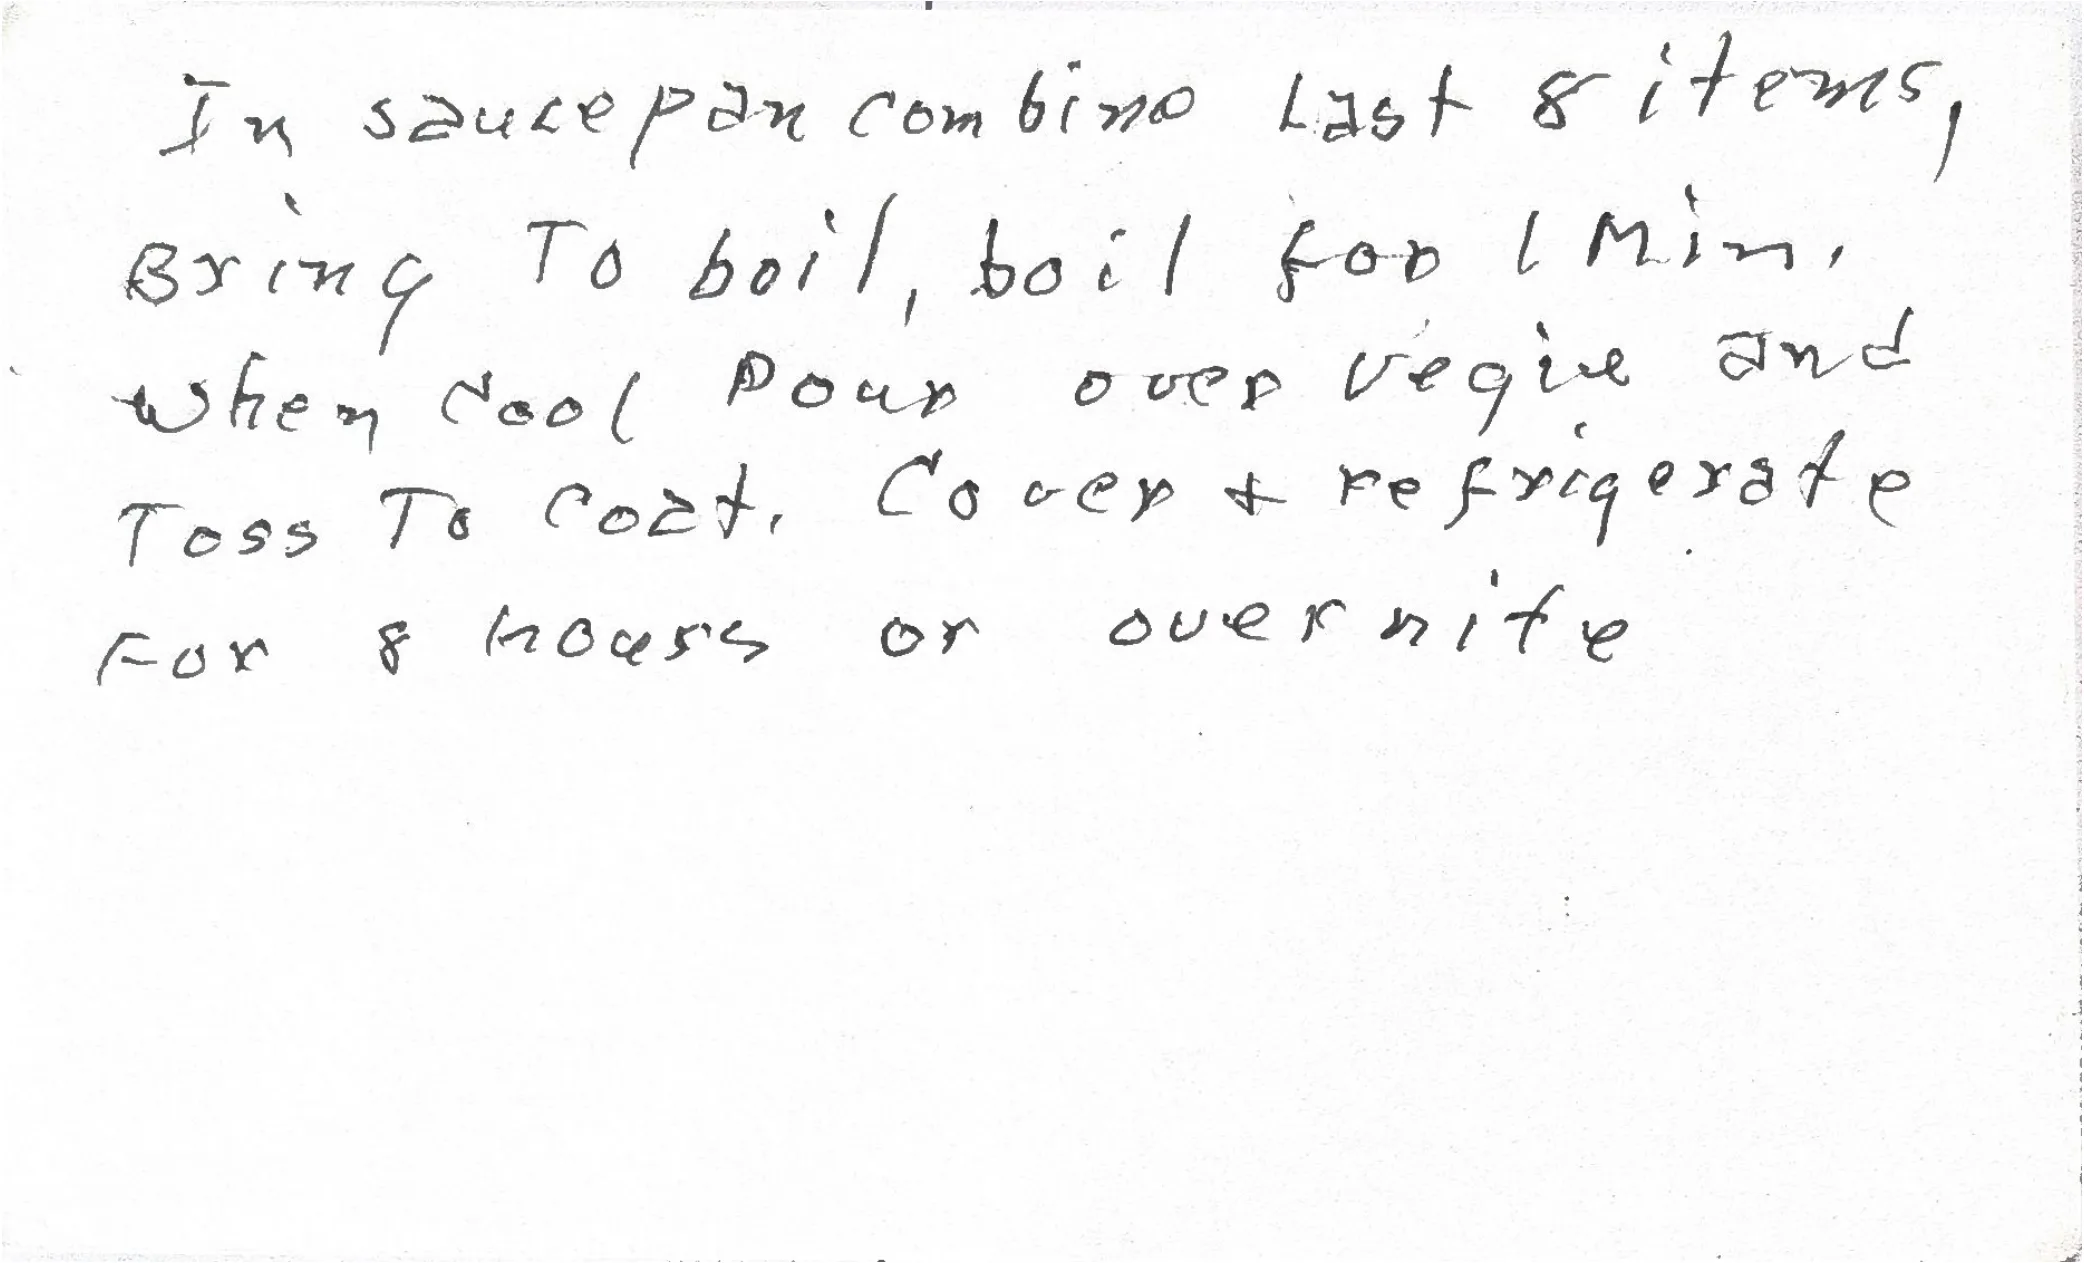 In saucepan combine Last 8 items,
Bring To boil, boil for 1 Min.
when cool Pour over vegie and
Toss To coat. Cover & refrigerate
For 8 hours or overnite